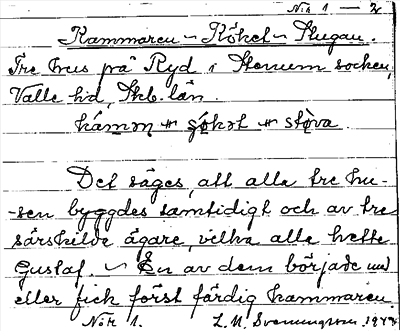 Nr 1 — 2
Kammaren - Köket - Stugan.
Tre hus på Ryd i Stenum socken,
Valle hd, Skb. län.
Det säges, att alla tre hu-
-sen byggdes samtidigt och av tre
särskilda ägare, vilka alla hette
Gustaf. - En av dem började med
eller fick först färdig kammaren.
Nr 1. L. M. Svenungsson